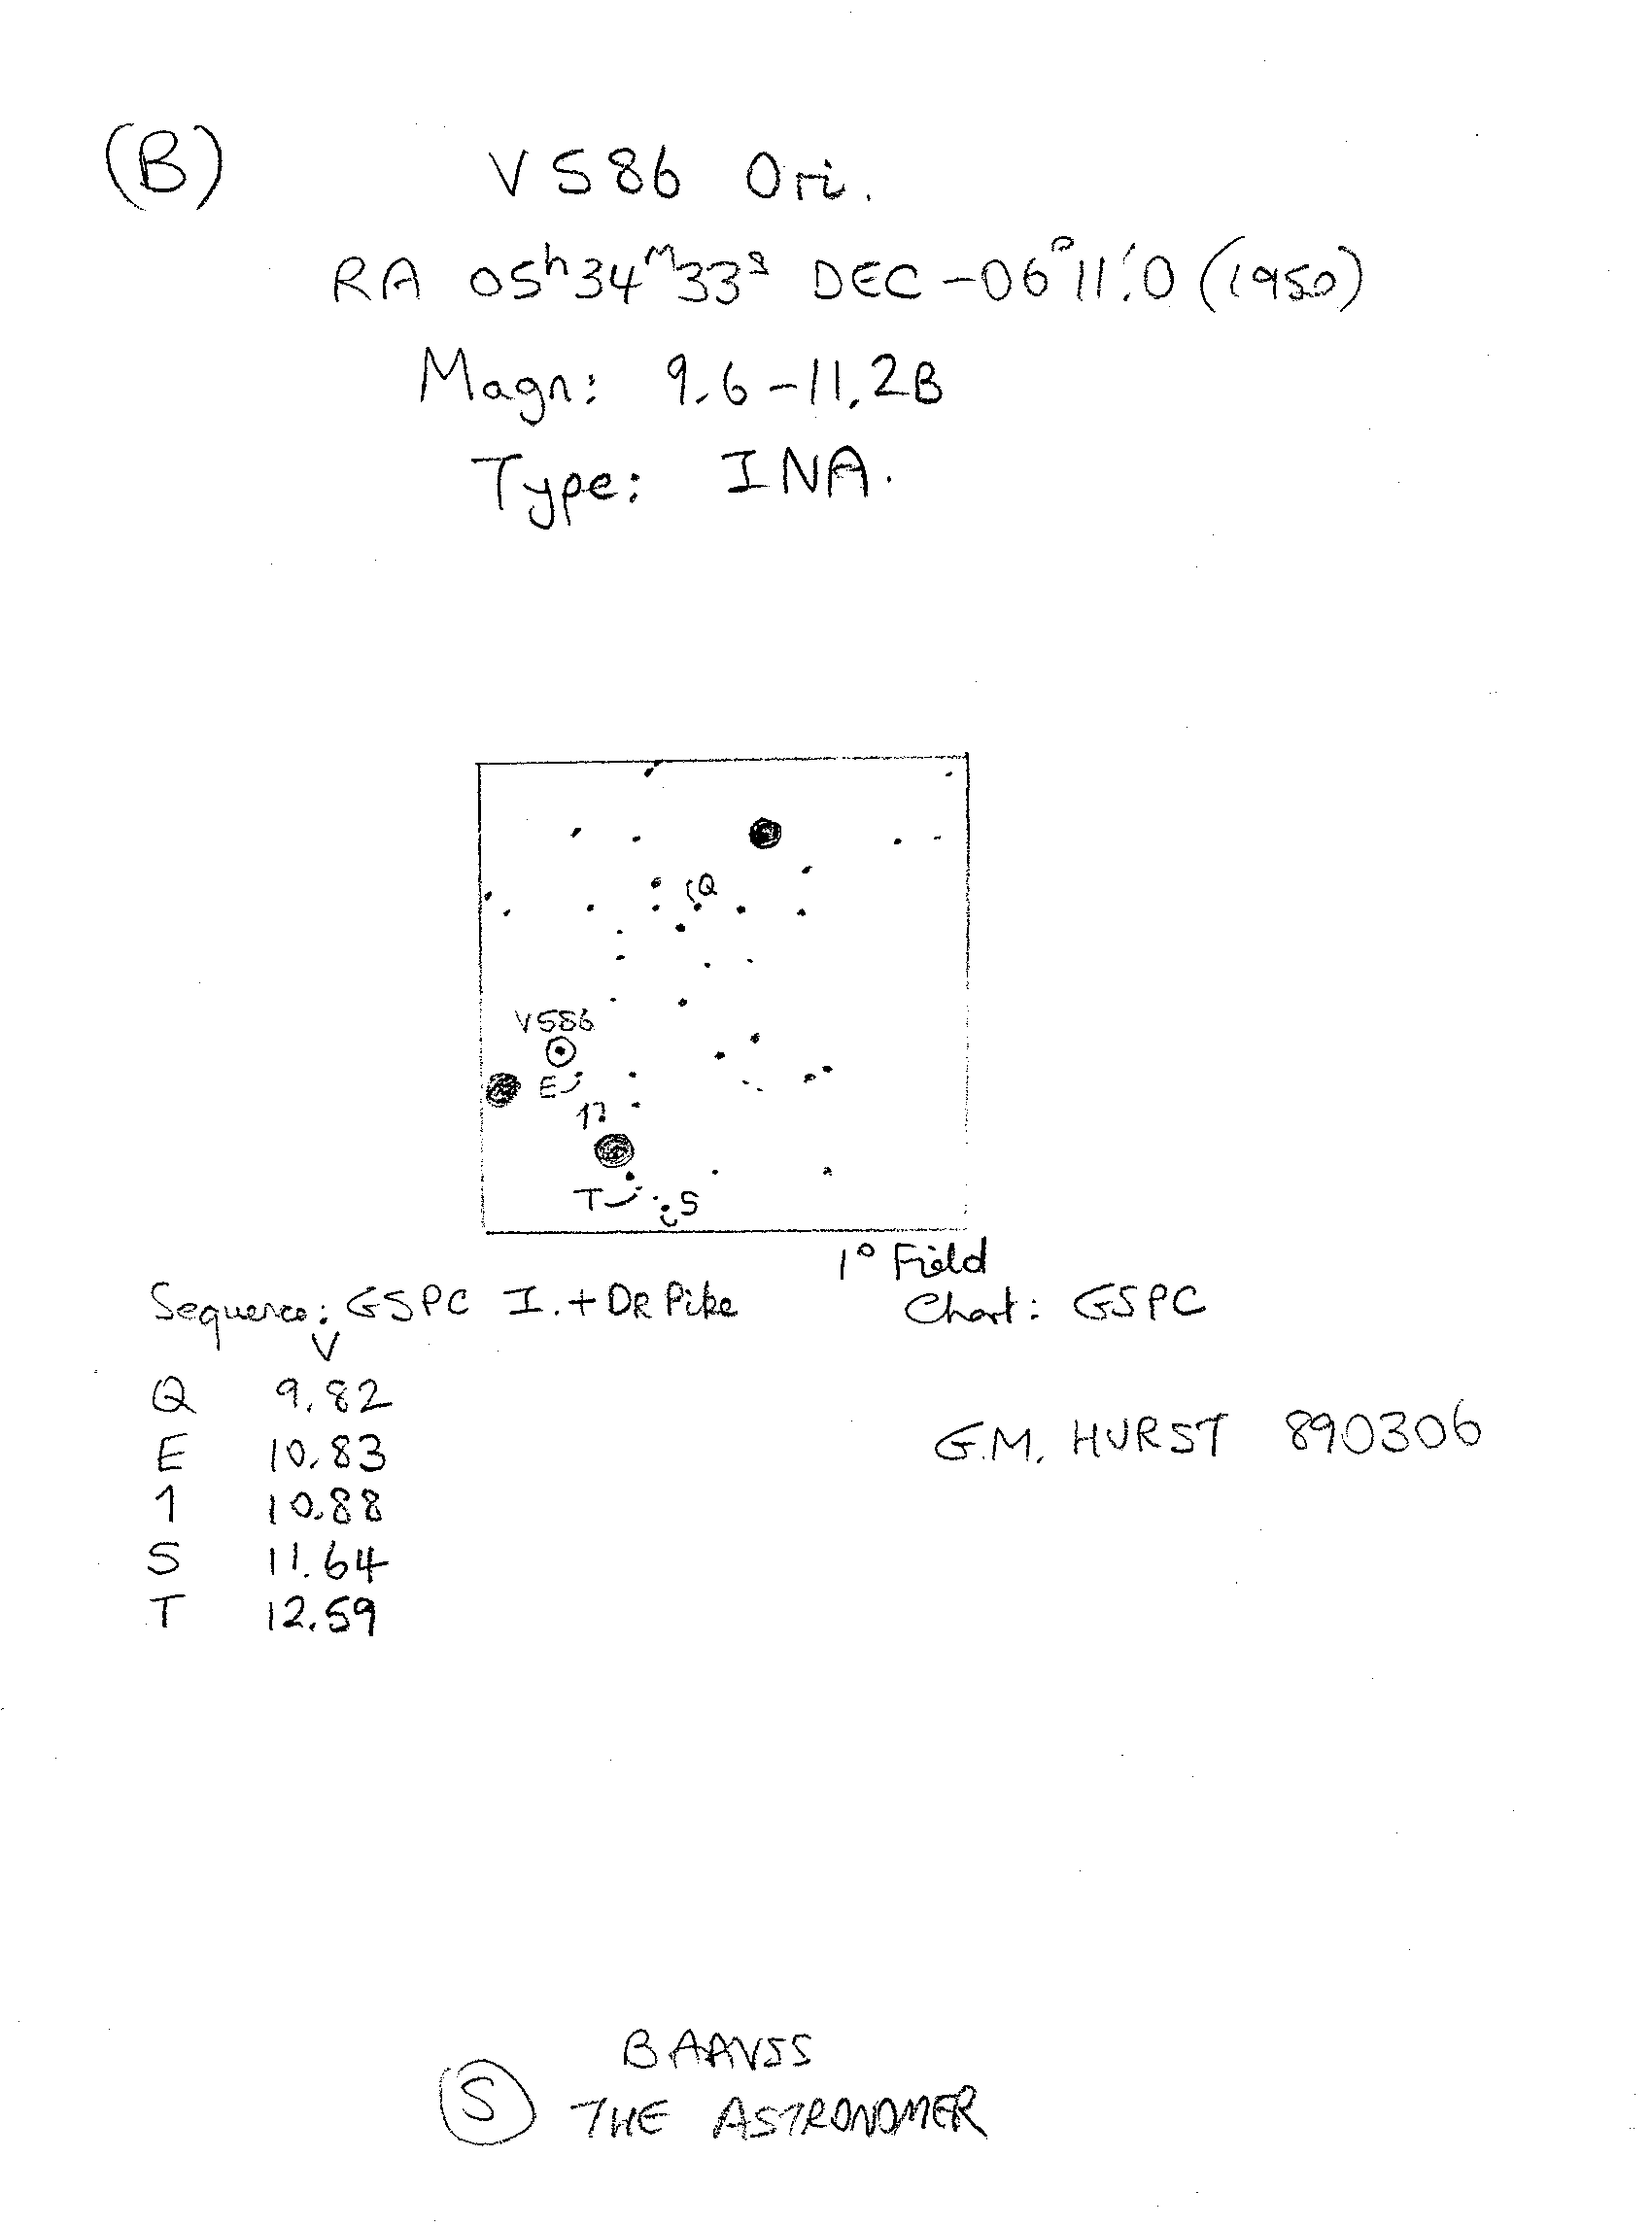 (B) V586 Ori.
RA 05h34M33s DEC -06°11'.0 (1950)
Magn: 9.6-11.2B
Type: INA.
Q
V586
E
1
T
S
1° Field
Sequence: GSPC I. + DR Pike
Chart: GSPC
V
Q 9.82
E 10.83
1 10.88
S 11.64
T 12.59
G.M. HURST 890306
BAAVSS
S THE ASTRONOMER